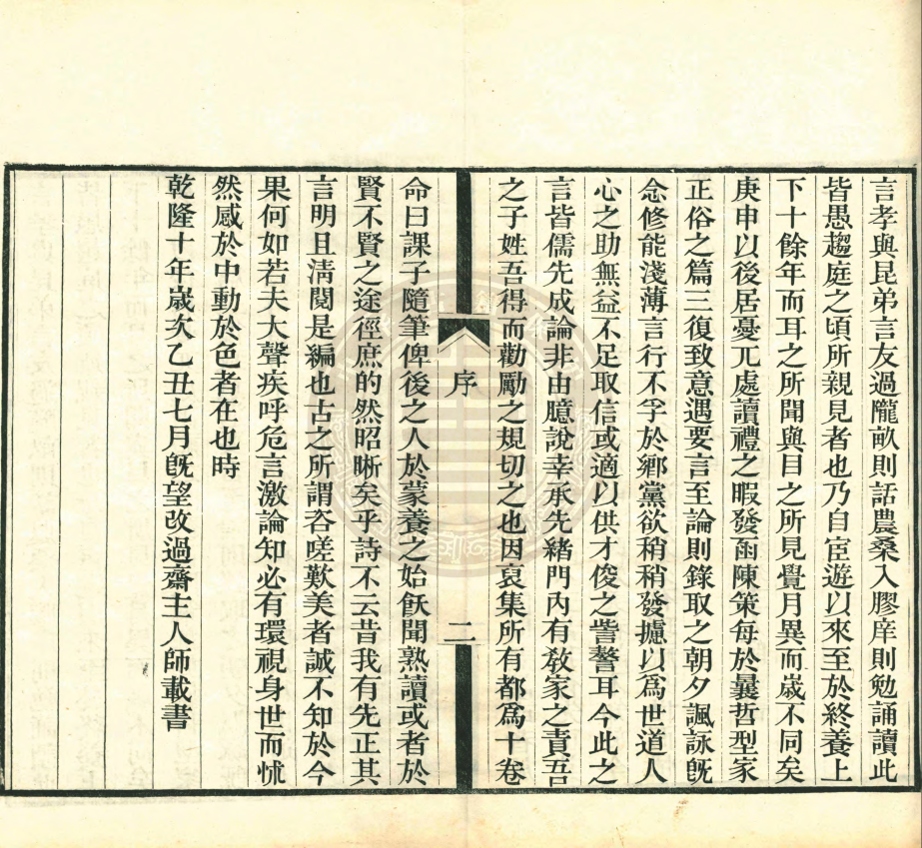 言孝與昆弟言友過隴畝則話農桑入膠庠則勉誦讀此
皆愚趨庭之頃所親見者也乃自宦遊以來至於終養上
下十餘年而耳之所聞與目之所見覺月異而嵗不同矣
庚申以後居憂兀處讀禮之暇發函陳策每於曩哲型家
正俗之篇三復致意遇要言至論則錄取之朝夕諷詠旣
念修能淺薄言行不孚於鄉黨欲稍稍發攄以爲世道人
心之助無益不足取信或適以供才俊之訾謷耳今此之
言皆儒先成論非由臆說幸承先緒門內有敎家之責吾
之子姓吾得而勸勵之規切之也因裒集所有都爲十卷
序
二
命曰課子隨筆俾後之人於蒙養之始飫聞熟讀或者於
賢不賢之途徑庶的然昭晰矣乎詩不云昔我有先正其
言明且淸閱是編也古之所謂咨嗟歎美者誠不知於今
果何如若夫大聲疾呼危言激論知必有環視身世而怵
然感於中動於色者在也時
乾隆十年嵗次乙丑七月旣望改過齋主人師載書